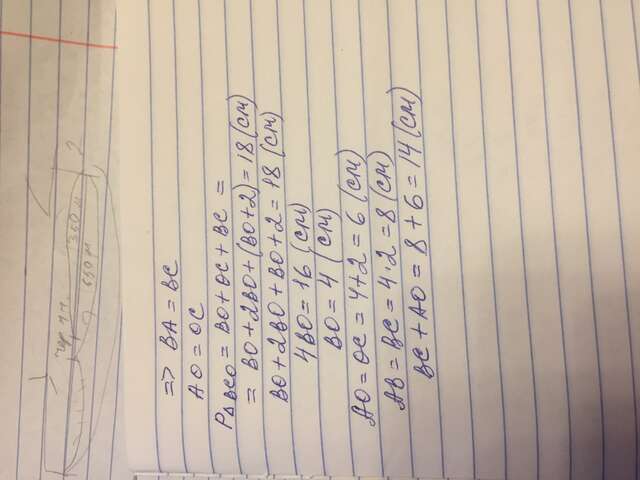 => BA = BC
AO = OC
P∆BCO = BO + OC + BC =
= BO + 2BO + (BO + 2) = 18 (см)
BO + 2BO + BO + 2 = 18 (см)
4BO = 16 (см)
BO = 4 (см)
AO = OC = 4 + 2 = 6 (см)
AB = BC = 4 · 2 = 8 (см)
BC + AO = 8 + 6 = 14 (см)